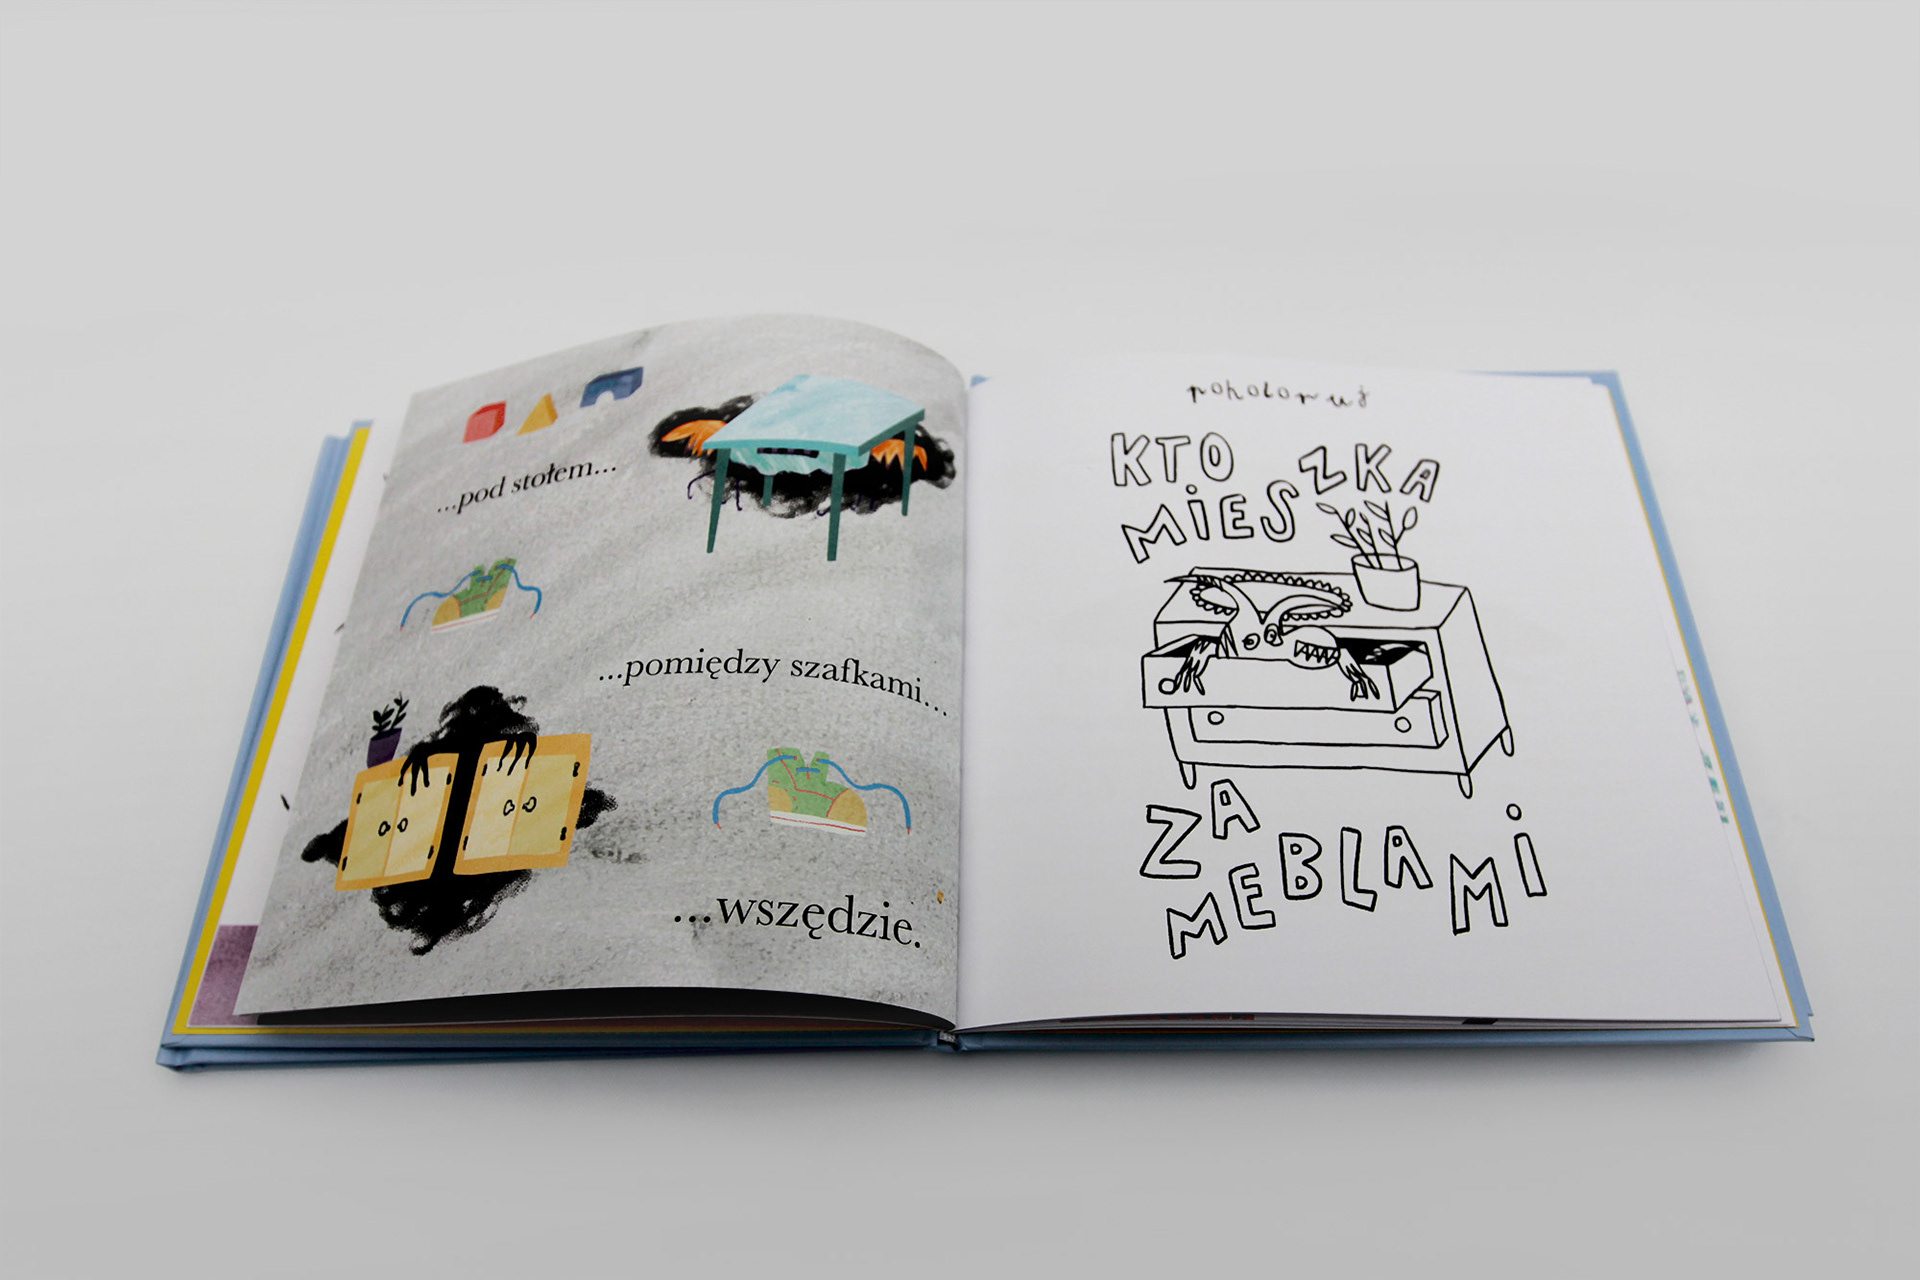 ...pod stołem...
...pomiędzy szafkami...
...wszędzie.
pokoloruj
KTO
MiESZKA
ZA
MEBLAMi